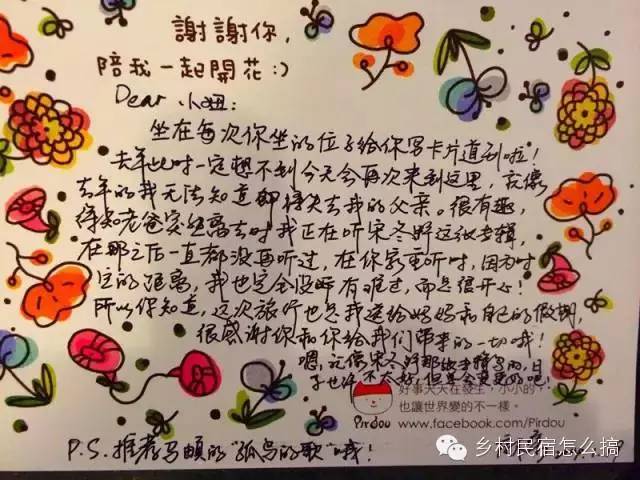 謝謝你,
陪我一起開花:)
Dear 小妞:
坐在每次你坐的位子给你写卡片道别啦!
去年此时一定想不到今天会再次来到这里,就像
去年的我无法知道即将失去我的父亲。很有趣,
得知老爸突然离去时我正在听宋冬野这张专辑,
在那之后一直都没再听过,在你家重听时,因为时
间的距离,我也完全没有难过,而是很开心!
所以你知道,这次旅行也是我送给妈妈和自己的假期,
很感谢你和你给我们带来的一切哦!
嗯,就像宋冬野那张专辑写的,日
子也许不太好,但是会更好的吧!
好事天天在發生,小小的,
也讓世界變的不一樣。
Pirdou www.facebook.com/Pirdou
P.S. 推荐马頔的"孤鸟的歌"哦!
乡村民宿怎么搞